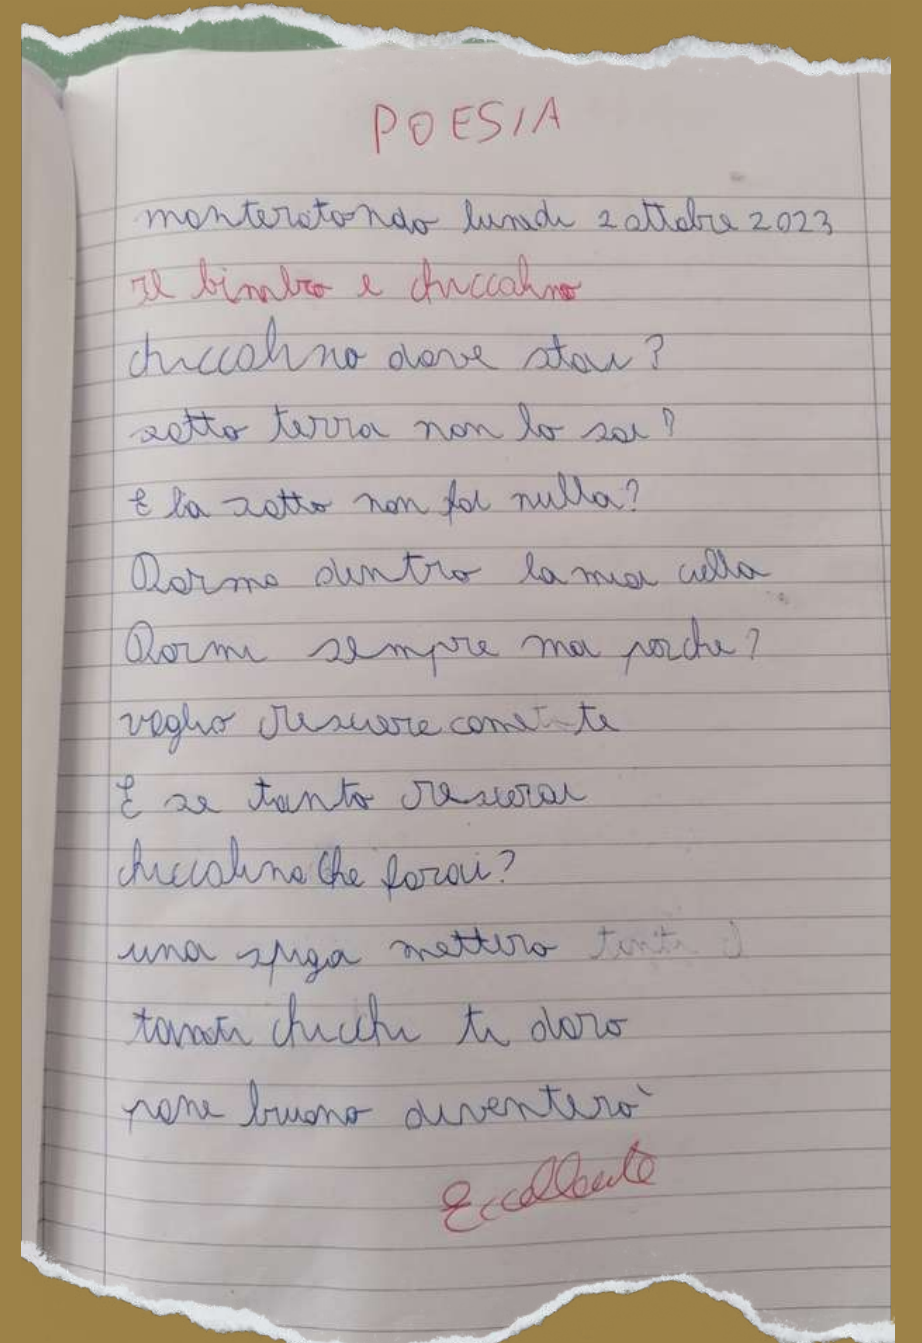 POESIA
monterotondo lunedi 2 ottobre 2023
Il bimbo e chiccolino
chiccolino dove stai?
sotto terra non lo sai?
E la sotto non fai nulla?
Dormo dentro la mia culla
Dormi sempre ma perche?
voglio crescere come te
E se tanto crescerai
chiccolino che farai?
una spiga mettero tanti
tanti chicchi ti daro
pane buono diventerò
Eccellente